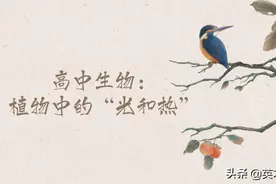 高中生物：
植物中的“光和热”
头条 @英